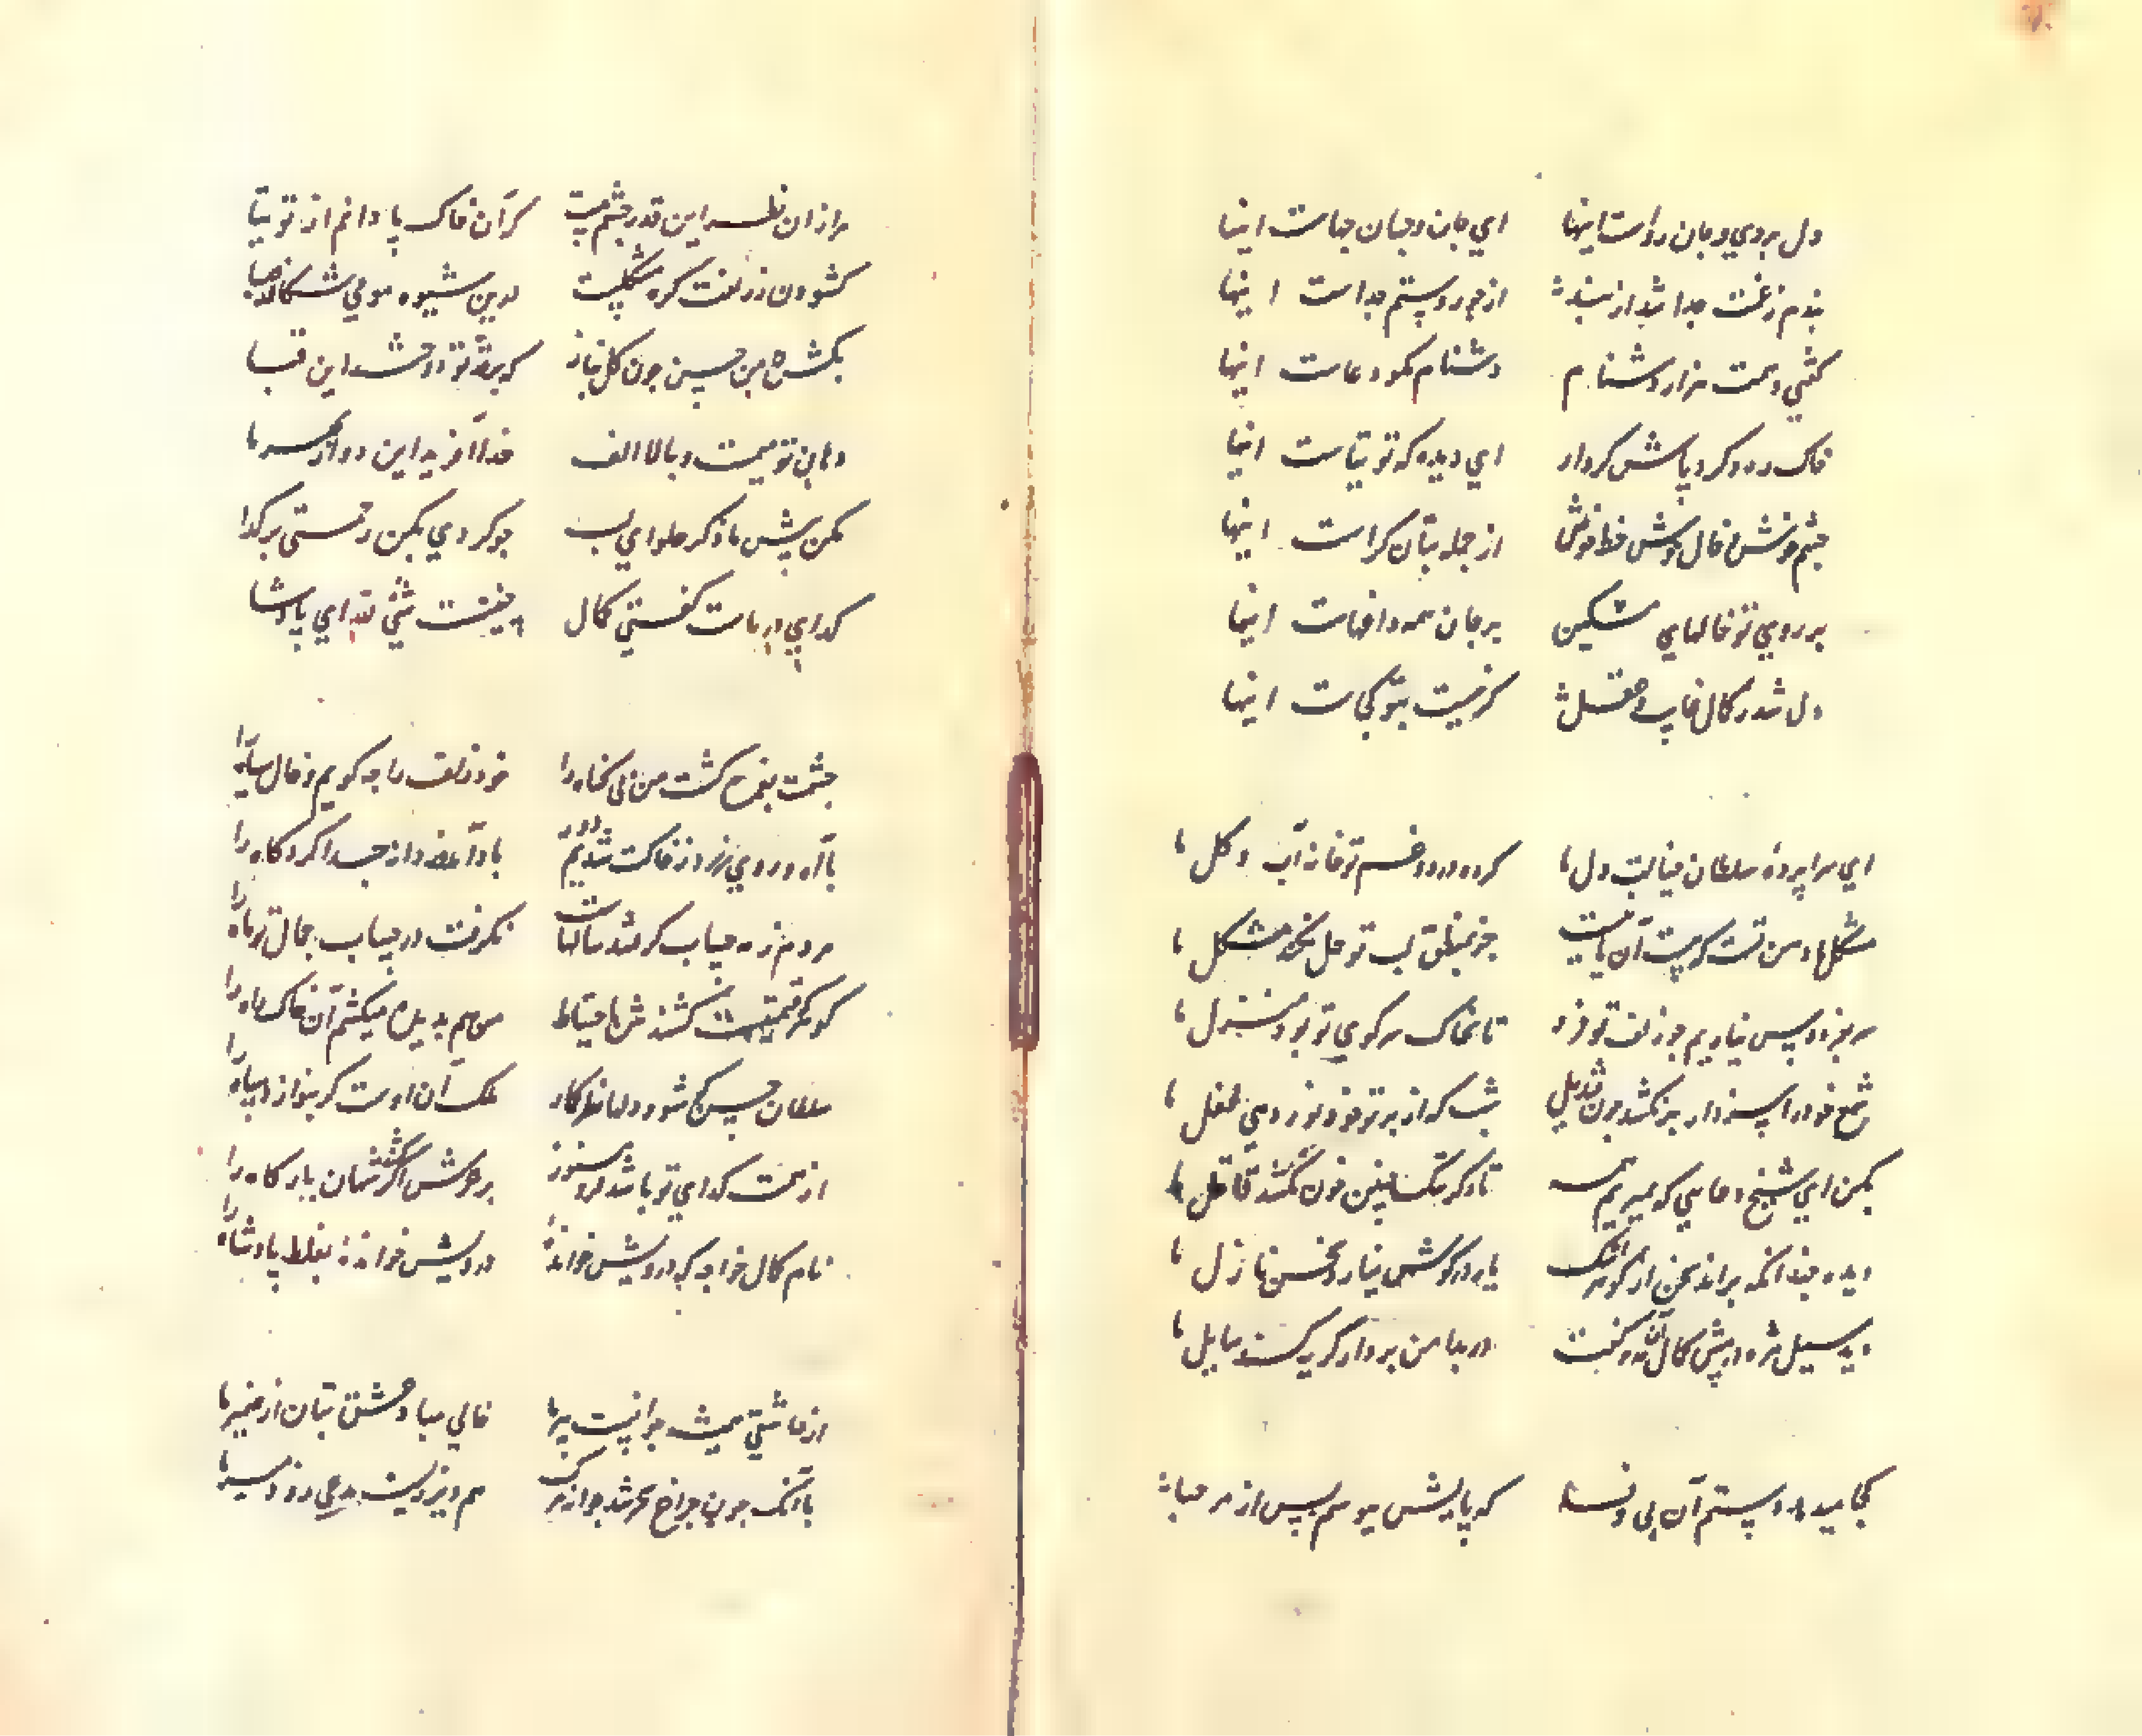 دل بردی و جان رواست اینها ای جان و جهان جهاست اینها
بندم زغمت جدا شد از بند از جور و ستم جداست اینها
گفتی دهمت هزار دشنام دشنام مگو دعاست اینها
خاک ره و گرد پاش گرد آر ای دیده که توتیاست اینها
چشم خوش و خال خوش خط خوش از جمله بتان کراست اینها
بر روی تو خالهای مشکین بر جان همه داغهاست اینها
دل شد ز کمال غایب و عقل گر نیست بتو کجاست اینها
ای سراپرده سلطان خیالت دل ما کرده درد و غم تو خانه آب و گل ما
مشکل ما دهن تست که هیچ آن یا نیست جز بنطق لب تو حل نکند مشکل ما
سر به فردوس نیاریم چو زلف تو فرو تا بخاک سر کوی تو بود منزل ما
شمع خود را پس در دار بر نکشد چون قندیل شب که از پرتو خود نور دهی محفل ما
مکن ای شیخ دعایی که نمیریم همه تا دگر یک بچنین خون نکشد قاتل ما
دیده چندانکه براند سخن از گوهر اشک یار در گوش نیارد سخن نازل ما
دید سیل مژه در پیش کمال آن مه و گفت در بجا من بر دارد گر به کند سایل ما
کجا میدهد دستم آن بی وفا که پایش ببوسم پس از مرحبا
مرا زان نظر این قدر چشم نیست کزان خاک پا دانم از توتیا
گشودن ز زلفت گره مشکلیست درین شیوه مویی شکافد صبا
بکش پیرهن چون گل بناز که بر قد تو دوختند این قبا
دهان تو میمست و بالا الف خدا آفرید این دو از بهر ما
مکن پیش ما ذکر حلوای لب چو کردی بکن رحمتی بر گدا
گدای در ماست گفتی کمال چنینست شیء لله ای پادشا
چشمت بغمزه کشت من بی گناه را خود زلف را چه گویم و خال سیاه را
با آه و روی زرد ز خاکت شدیم دور باد آمد و از جدا کرد کاه را
مردم ز مه حساب گرفتند سالهاست نگرفت در حساب جمال تو ماه را
گوهر گر قیمتیست کشندش باحتیاط من هم بدیده میکشم آن خاک راه را
سلطان حسن گو شود دلها نظر گمار ملک آن اوست کو بنوازد سپاه را
از همت گدای تو باشد فرو هنوز بر عرش اگر کشند شهان بارگاه را
نام کمال خواجه که درویش خوانده درویش خوانده بغلط پادشاه را
از عاشقی همیشه جوانیست پیر ما خالی مباد عشق بتان از ضمیر ما
با آنک چون چراغ سحر شد جوانه مرگ هم ویز نیست مدعی زود میر ما